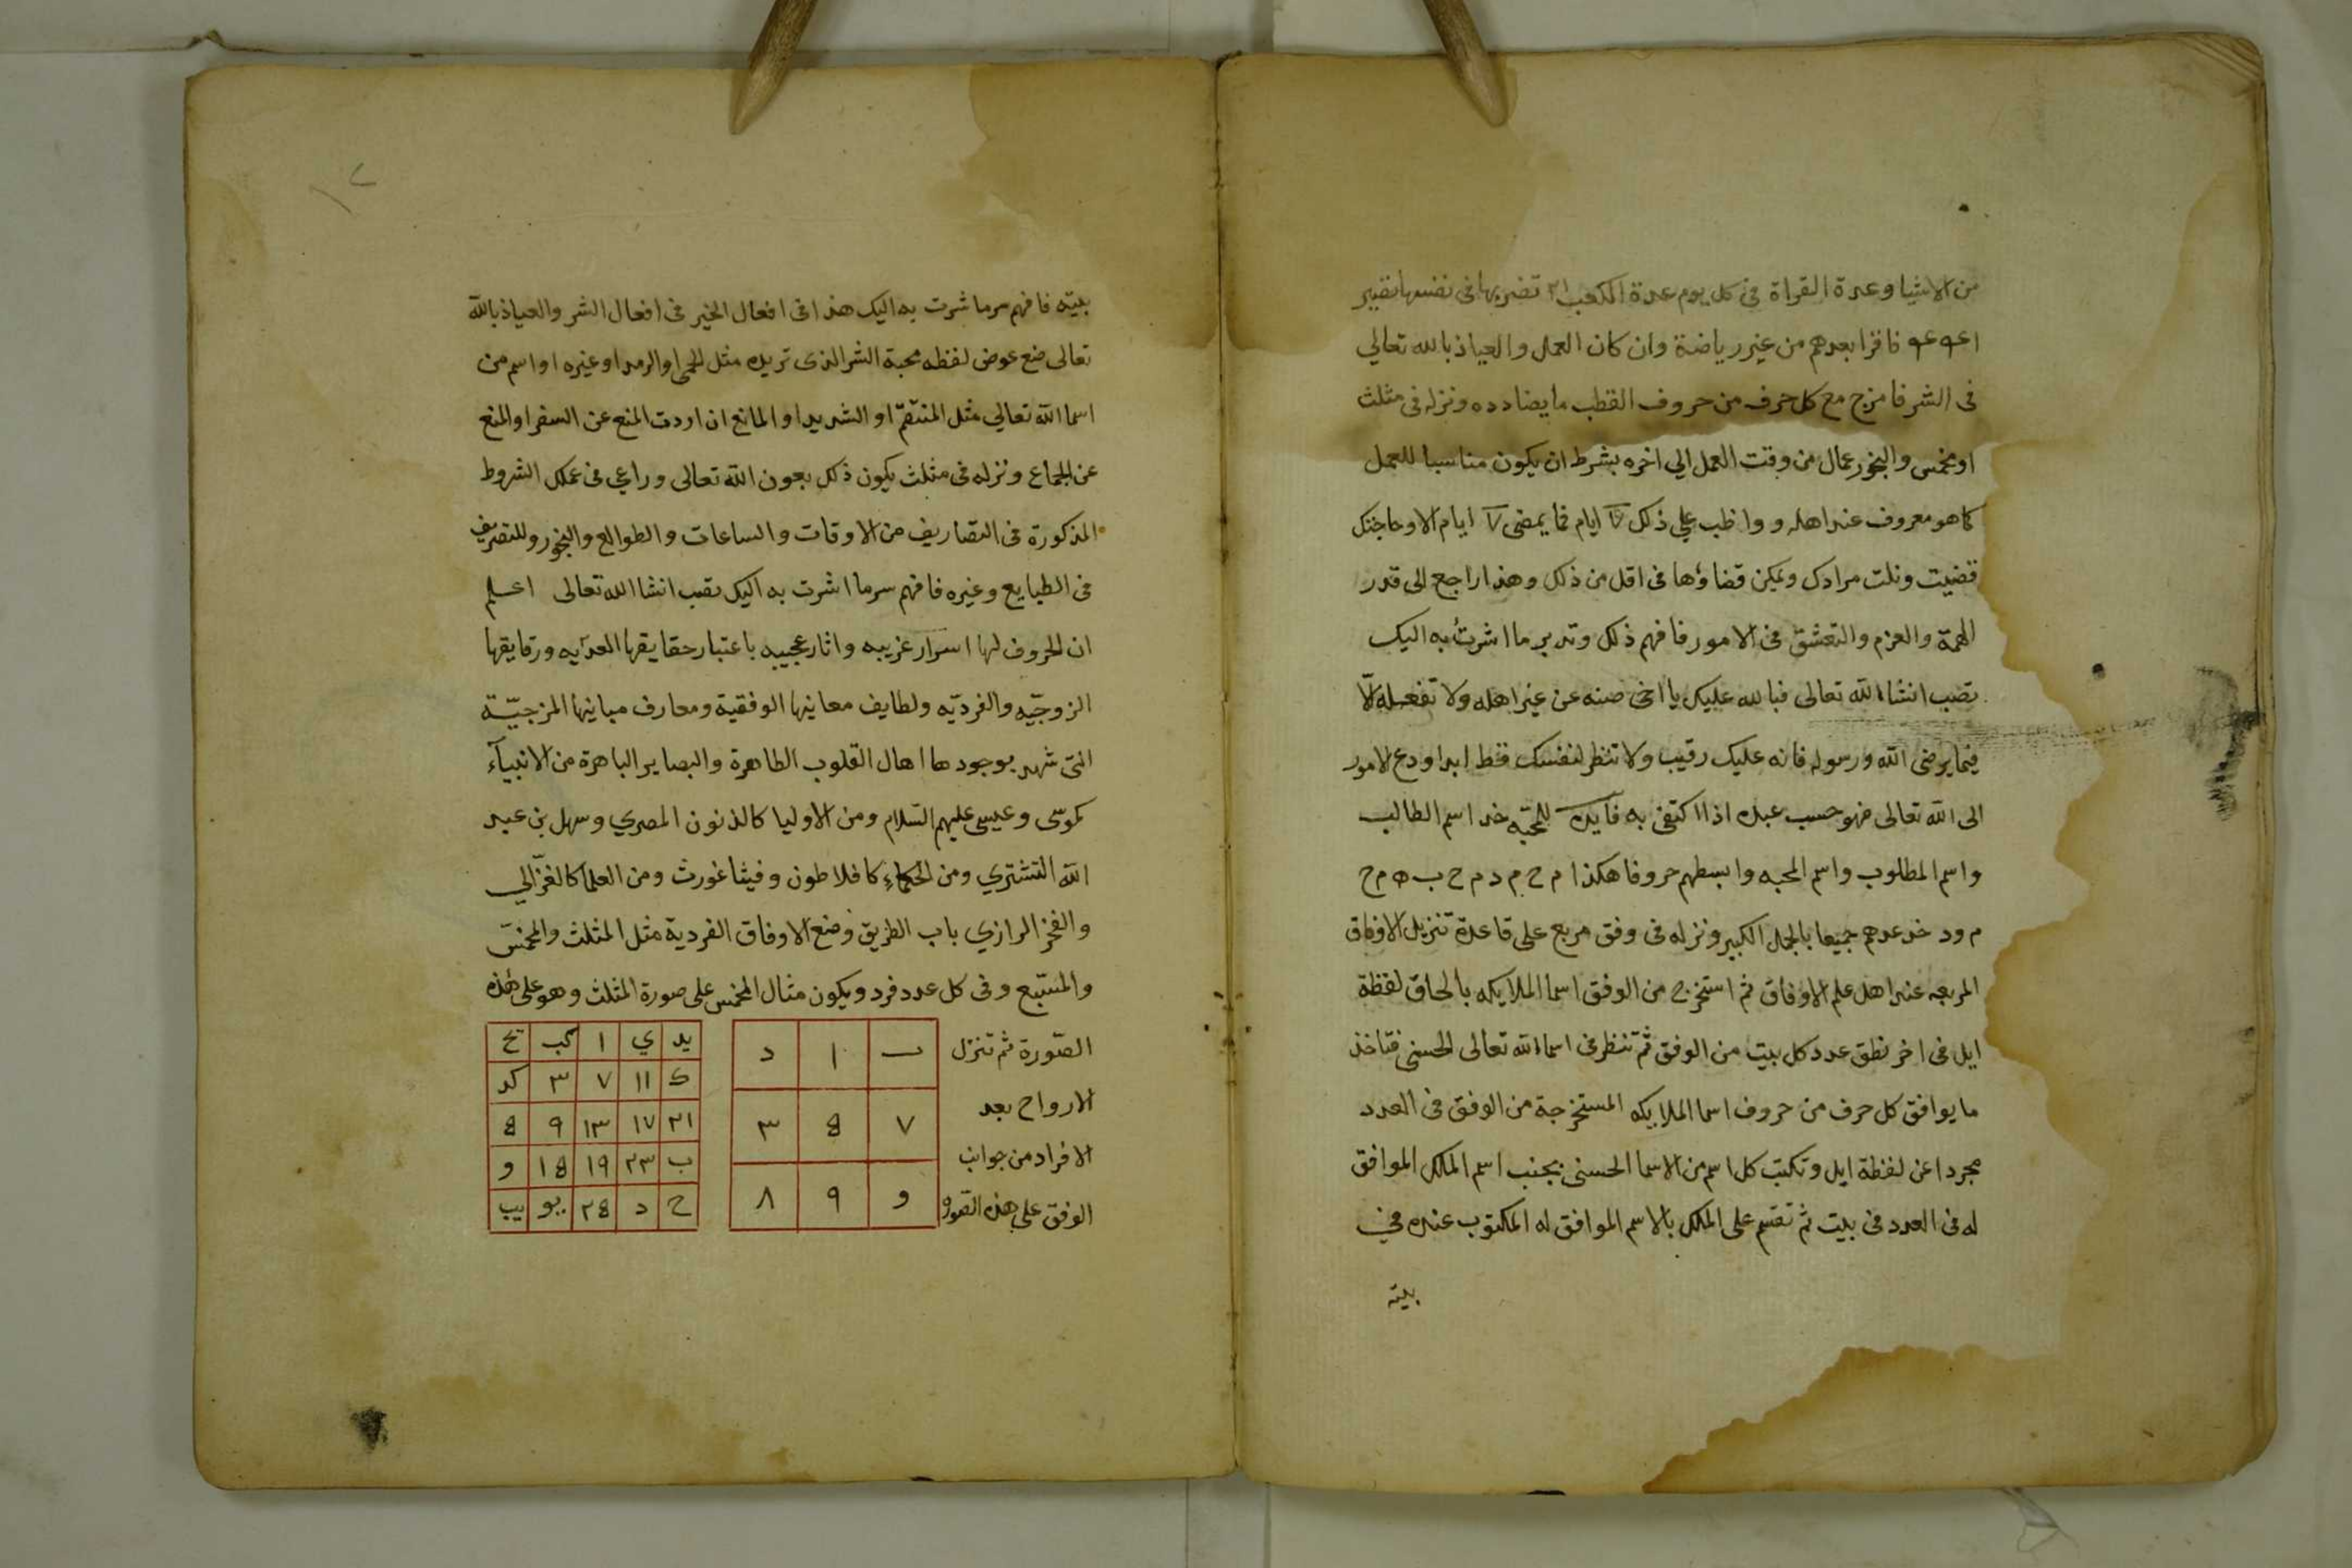 من الاشيا وعدة القراة فى كل يوم عدة المكعب ٢١ تضربها فى نفسها تصير
فاقرا بعدهم من غير رياضة وان كان العمل والعياذ بالله تعالي
فى الشر فامزج مع كل حرف من حروف القطب ما يضادده ونزله فى مثلث
او مخمس والبخور عمال من وقت العمل الي اخره بشرط ان يكون مناسبا للعمل
كما هو معروف عند اهله وواظب علي ذلك ٧ ايام فما يمضى ٧ ايام الا وحاجتك
قضيت ونلت مرادك ويمكن قضاؤها فى اقل من ذلك وهذا راجع الى قدر
الهمة والعزم والتعشق فى الامور فافهم ذلك وتدبر ما اشرت به اليك
تصب انشاالله تعالى فبالله عليك يا اخى صنه عن غير اهله ولا تفعله الّا
فيما يرضى الله ورسوله فانه عليك رقيب ولا تنظر لنفسك فقط ابدا ودع الامور
الى الله تعالى فهو حسب عبده اذا اكتفى به فايدة للمحبه خد اسم الطالب
واسم المطلوب واسم المحبه وابسطهم حروفا هكذا م ح م د م ح ب ه م ح
م و د خد عددهم جميعا بالجمل الكبير ونزله فى وفق مربع على قاعدة تنزيل الاوفاق
المربعه عند اهل علم الاوفاق ثم استخرج من الوفق اسما الملايكه بالحاق لفظة
ايل فى اخر نطق عدد كل بيت من الوفق ثم تنظر فى اسماء الله تعالى الحسنى فتاخذ
ما يوافق كل حرف من حروف اسما الملايكه المستخرجة من الوفق فى العدد
مجردا عن لفظة ايل وتكتب كل اسم من الاسما الحسنى بجنب اسم الملك الموافق
له فى العدد فى بيت ثم تقسم على الملك بالاسم الموافق له المكتوب عنده فى
بيته
بيته فافهم سر ما شرت به اليك هذا فى افعال الخير فى افعال الشر والعياذ بالله
تعالى ضع عوض لفظه محبة الشر الذى تريده مثل الحمى او الرمد او غيره او اسم من
اسما الله تعالي مثل المنتقم او الشديد او المانع ان اردت المنع عن السفر او المنع
عن الجماع ونزله فى مثلث يكون ذلك بعون الله تعالى وراعي فى عملك الشروط
المذكورة فى التصاريف من الاوقات والساعات والطوالع والبخور وللتصريف
فى الطبايع وغيره فافهم سر ما اشرت به اليك تصب انشا الله تعالى اعلم
ان الحروف لها اسرار غريبه واثار عجيبه باعتبار حقايقها العدديه ورقايقها
الزوجيّه والفرديّه ولطايف معانيها الوفقية ومعارف مبانيها المزجيّة
التى شهد بوجودها اهال القلوب الطاهرة والبصاير الباهرة من الانبيآء
كموسى وعيسى عليهم السّلام ومن الاوليا كالذنون المصري وسهل بن عبد
الله التشتري ومن الحكماء كافلاطون وفيثاغورث ومن العلما كالغزّالي
والفخر الرازي باب الطريق وضع الاوفاق الفردية مثل المثلث والمخمس
والمسبّع وفى كل عدد فرد ويكون مثال المخمس على صورة المثلث وهو على هذه
الصّورة ثم تنزل
الارواح بعد
الافراد من جوانب
الوفق على هذه الصّوره
ب ا د
٧ 8 ٣
و ٩ ٨
يد ي ا كب يح
ك ١١ ٧ ٣ كد
٢١ ١٧ ١٣ ٩ 8
ب ٢٣ ١٩ ١8 و
ح د ٢8 يو يب